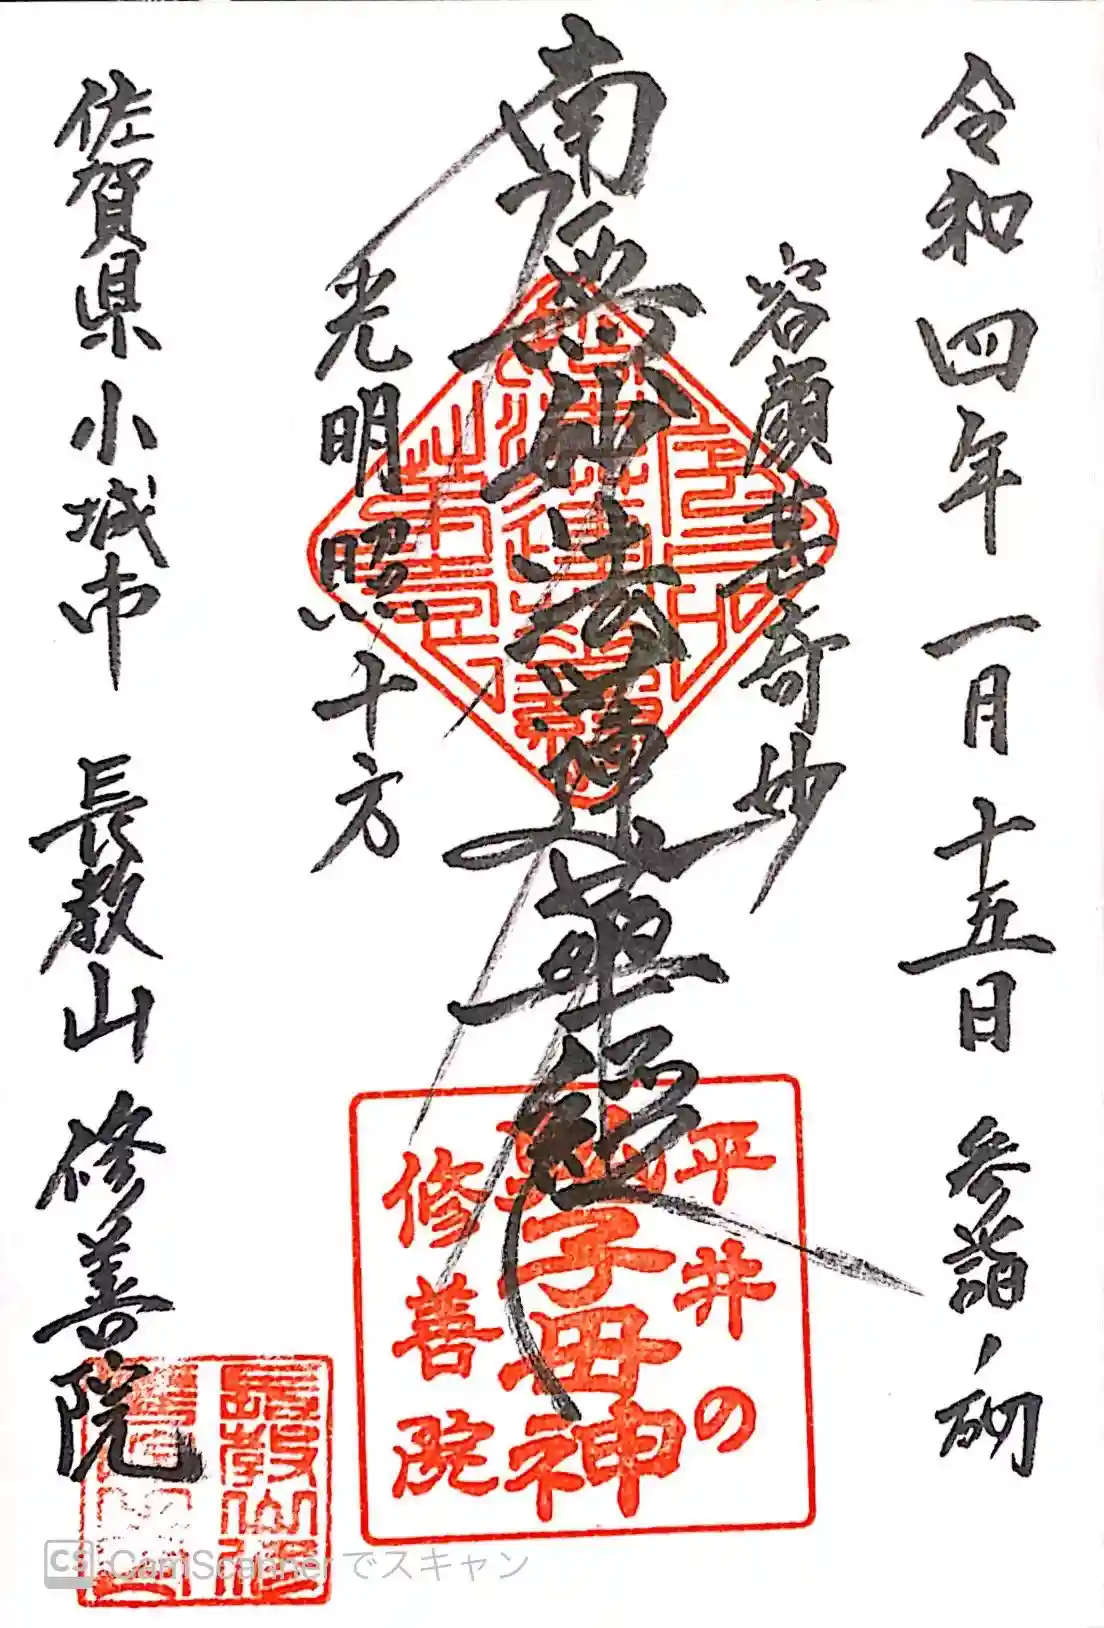 令和四年一月十五日 参詣ノ砌
容顔甚奇妙
南無妙法蓮華経
光明照十方
佐賀県小城市 長教山 修善院
平井の
鬼子母神
修善院
長教山修
CS CamScanner でスキャン